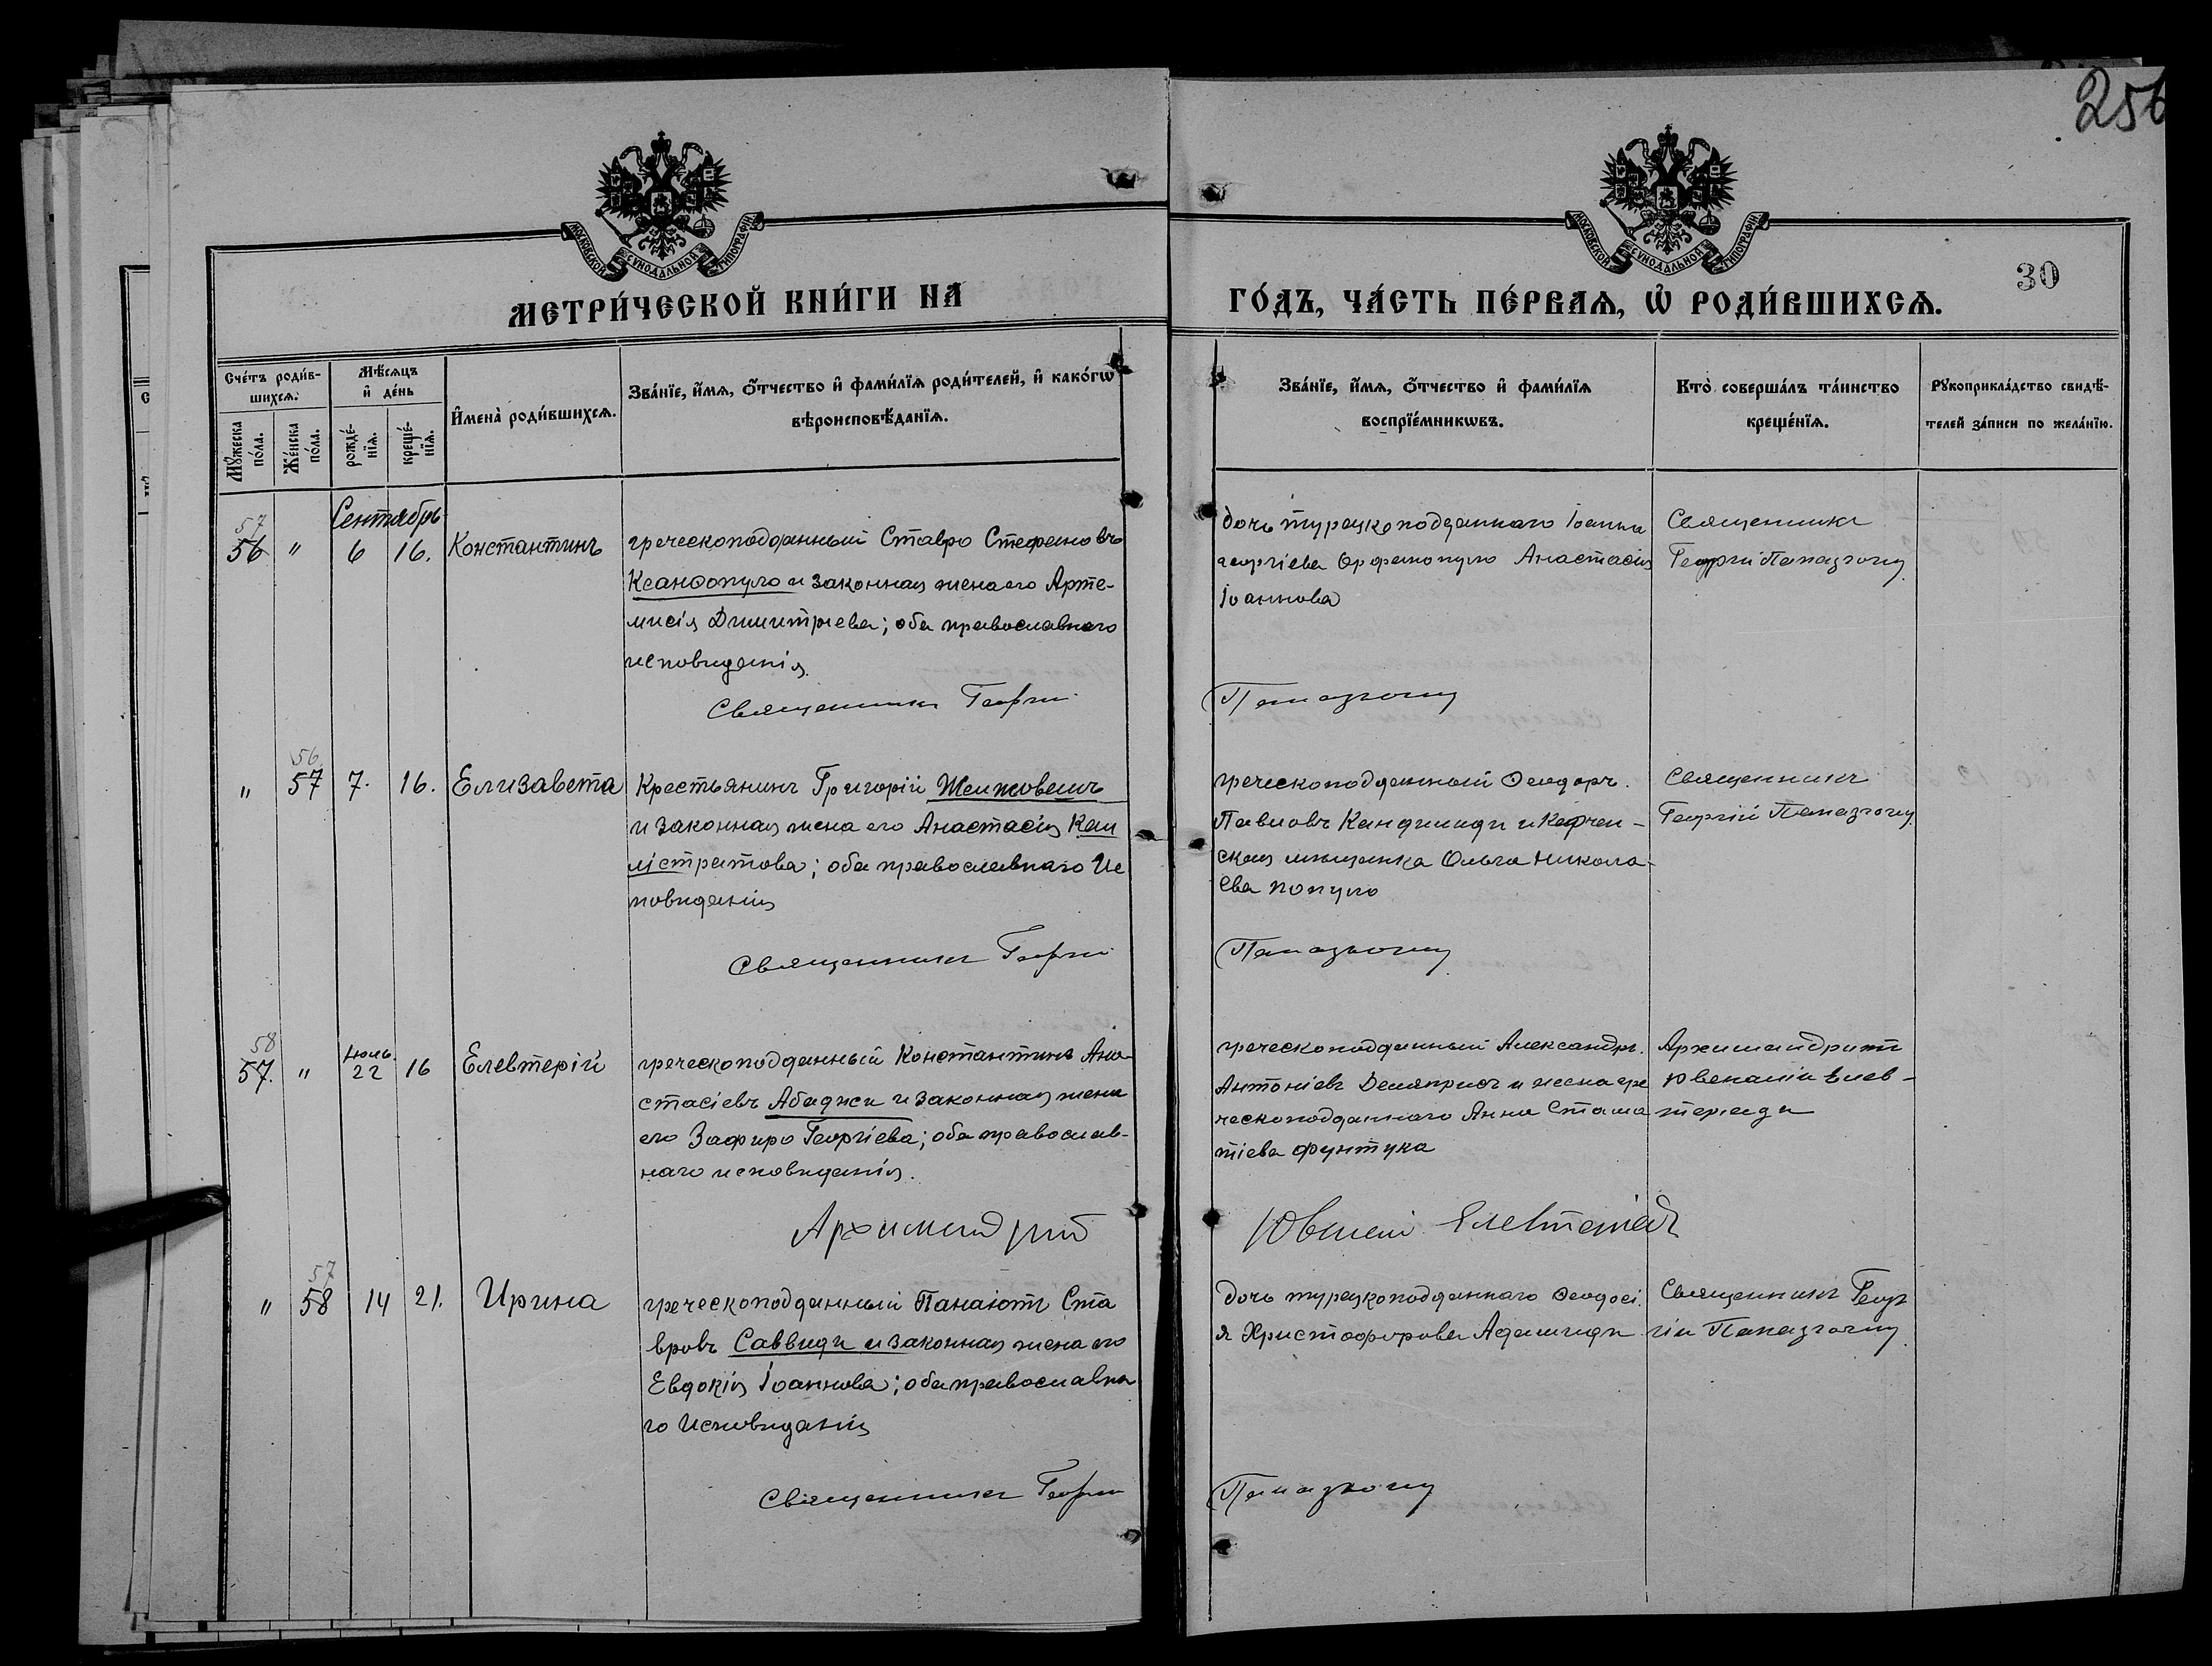 256
30
МОСКОВСКОЙ СѴНОДАЛЬНОЙ ТИПОГРАФІИ
МОСКОВСКОЙ СѴНОДАЛЬНОЙ ТИПОГРАФІИ
МЕТРИ́ЧЕСКОЙ КНИ́ГИ НА̀ ГО́ДЪ, ЧА́СТЬ ПЕ́РВАѦ, Ѡ҆ РОДИ́ВШИХСѦ.
Сче́тъ роди́в-
шихсѧ.
Мѣ́сѧцъ
и҆ де́нь
Мꙋ́жеска по́ла.
Же́нска по́ла.
рожде́-
нїѧ.
креще́-
нїѧ.
И҆мена̀ роди́вшихсѧ.
Зва́нїе, и҆́мѧ, ѻ҆́тчество и҆ фами́лїѧ роди́телей, и҆ како́гѡ
вѣроисповѣ́данїѧ.
Зва́нїе, и҆́мѧ, ѻ҆́тчество и҆ фами́лїѧ
воспрїе́мникѡвъ.
Кто̀ соверша́лъ та́инство
креще́нїѧ.
Рꙋкоприкла́дство свидѣ́-
телей за́писи по жела́нїю.
Сентябрь
57
56 " 6 16. Константинъ
греческоподданный Ставро Стефановъ
Ксанфопуло и законная жена его Арте-
мисія Димитріева; оба православнаго
исповиданія.
Священникъ Георгій
дочь турецкоподданнаго Іоанна
георгіева Орфанопуло Анастасія
Іоаннова
Священникъ
Георгій Папазгочлу
Папазгочлу
56
" 57 7. 16. Елизавета
Крестьянинъ Григорій
и законная жена его Анастасія Кал
лістратова; оба православнаго Ис
повиданія
Священникъ Георгій
греческоподданный Ѳеодоръ
Павловъ и Керчен-
ская мищанка Ольга Никола-
ева популо
Священникъ
Георгій Папазгочлу
Папазгочлу
58
57. " Июль
22 16 Елевтерій
греческоподданный Константинъ Ана-
стасіевъ Абаджи и законная жена
его Зафиро Георгіева; оба православ-
наго исповиданія.
Архимандрит
греческоподданный Александръ
Антоніевъ и жена гре
ческоподданнаго Анна Стама
тіева фунтука
Архимандритъ
Ювеналій Елев-
териади
Ювеналій
57
" 58 14 21. Ирина
греческоподданный Панаіотъ Ста
вровъ Саввиди и законная жена его
Евдокія Іоаннова; оба православна
го Исповиданія
Священникъ Георгій
Дочь турецкоподданнаго Ѳеодосі
я Христофорова
Священникъ Геор
гій Папазгочлу
Папазгочлу